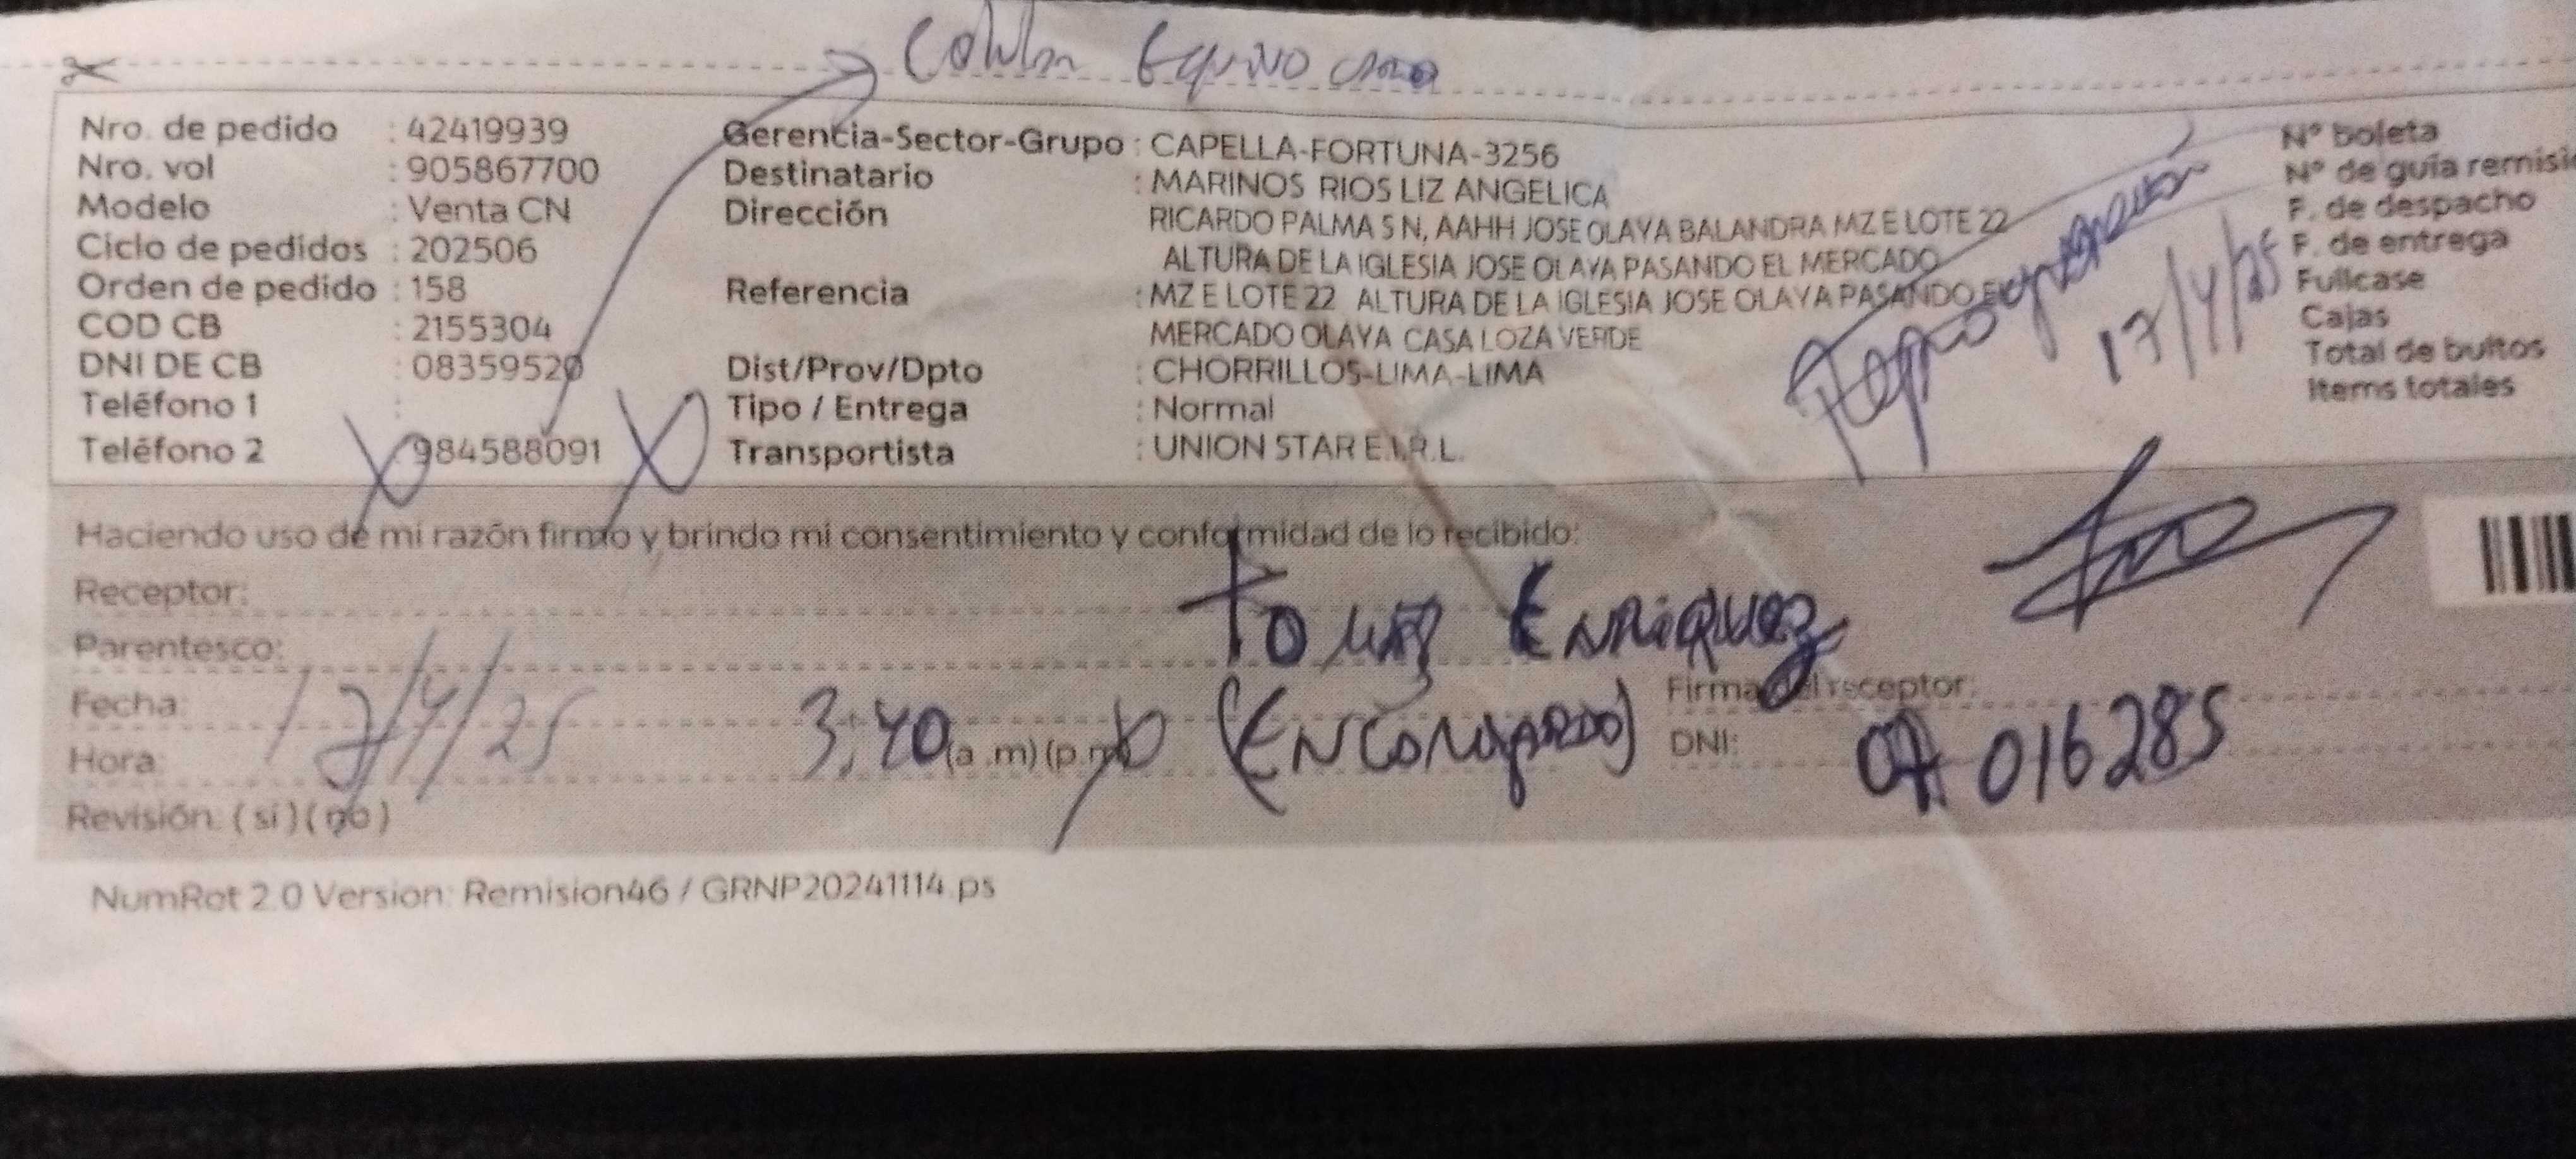 Nro. de pedido : 42419939
Nro. vol : 905867700
Modelo : Venta CN
Ciclo de pedidos : 202506
Orden de pedido : 158
COD CB : 2155304
DNI DE CB : 08359520
Teléfono 1 :
Teléfono 2 : 984588091
Gerencia-Sector-Grupo : CAPELLA-FORTUNA-3256
Destinatario : MARINOS RIOS LIZ ANGELICA
Dirección RICARDO PALMA S N, AAHH JOSE OLAYA BALANDRA MZ E LOTE 22
ALTURA DE LA IGLESIA JOSE OLAYA PASANDO EL MERCADO
Referencia : MZ E LOTE 22 ALTURA DE LA IGLESIA JOSE OLAYA PASANDO EL
MERCADO OLAYA CASA LOZA VERDE
Dist/Prov/Dpto : CHORRILLOS-LIMA-LIMA
Tipo / Entrega : Normal
Transportista : UNION STAR E.I.R.L.
17/4/25
N° boleta
N° de guía
F. de despacho
F. de entrega
Fullcase
Cajas
Total de bultos
Items totales
Haciendo uso de mi razón firmo y brindo mi consentimiento y conformidad de lo recibido:
Receptor:
Parentesco:
Enriquez
Fecha: 17/4/25
Hora: 3:40 (a .m) (p.m)
Firma del receptor:
DNI: 016285
Revisión: ( si ) ( no )
NumRot 2.0 Version: Remision46 / GRNP20241114.ps